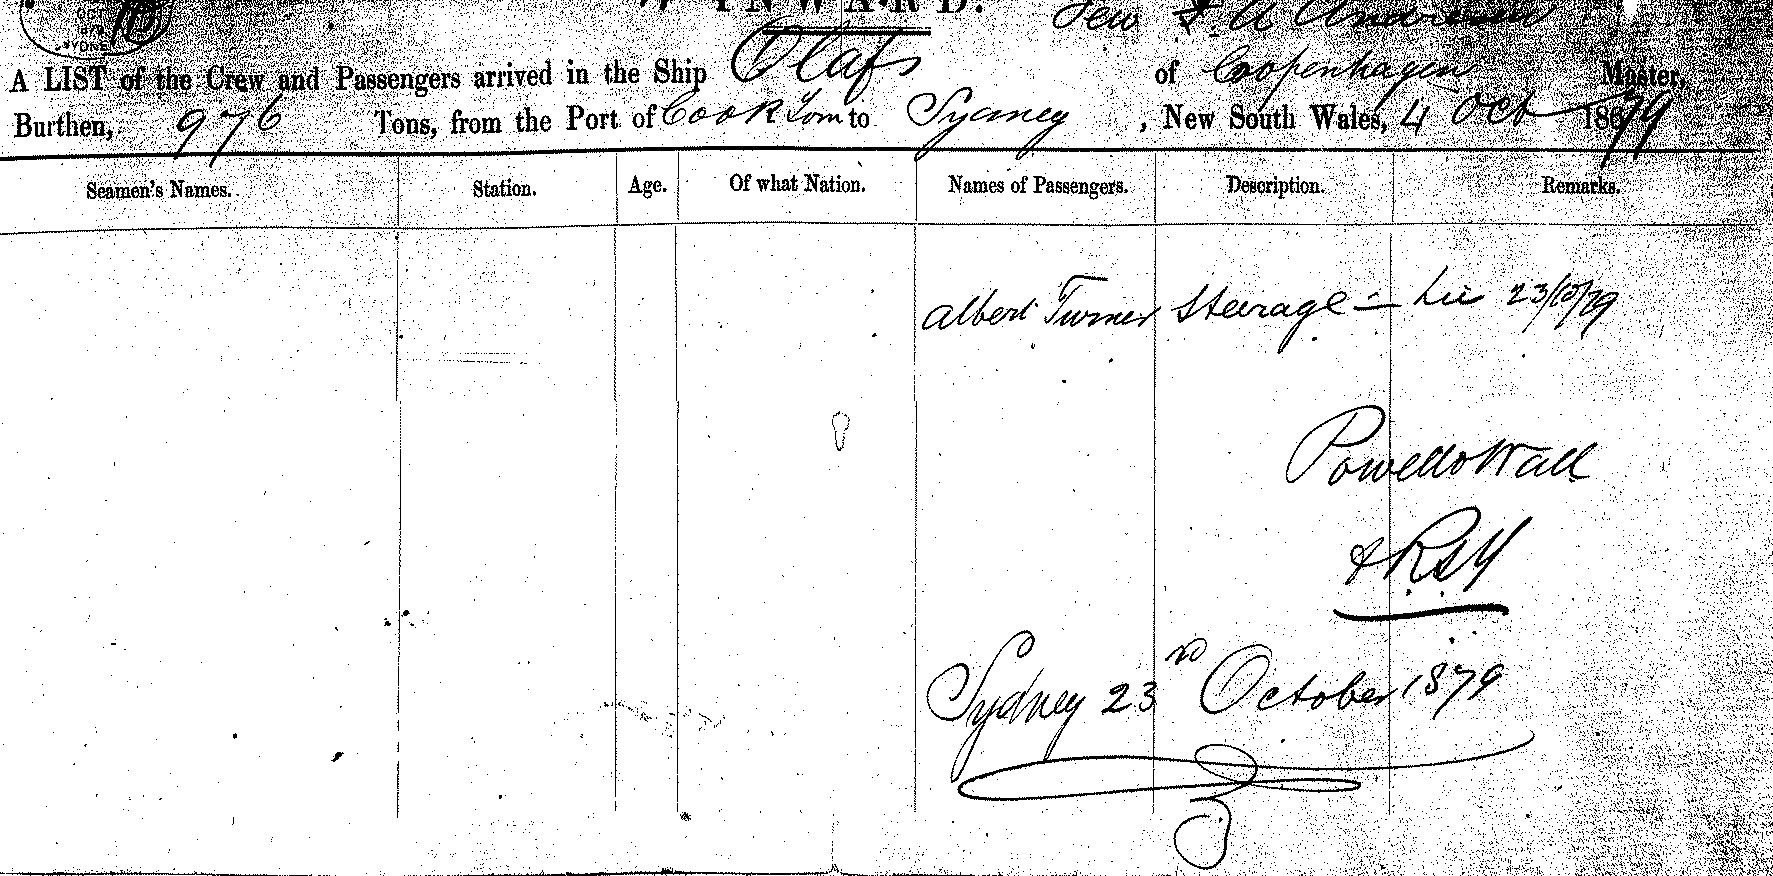 INWARD.
A LIST of the Crew and Passengers arrived in the Ship Olafs of Coopenhagen Master,
Burthen, 976 Tons, from the Port of Cooktown to Sydney, New South Wales, 4 Oct 1879
Seamen's Names. Station. Age. Of what Nation. Names of Passengers. Description. Remarks.
Albert Turner Steerage 23/10/79
Powell Wall
Sydney 23rd October 1879